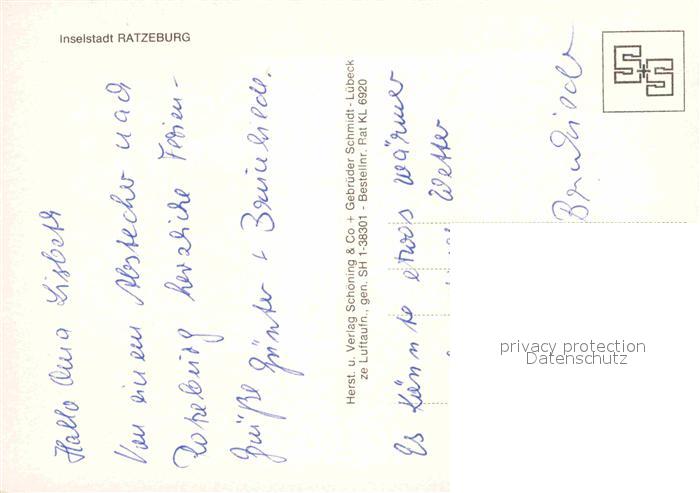 Inselstadt RATZEBURG
Hallo Oma Lisbeth
Von einem Abstecher nach
Ratzeburg herzliche Ferien-
grüße Günter + Brunhilde.
Herst. u. Verlag Schöning & Co + Gebrüder Schmidt - Lübeck
ze Luftaufn., gen. SH 1-38301 - Bestellnr. Rat KL 6920
Es könnte etwas wärmer
Wetter
privacy protection
Datenschutz